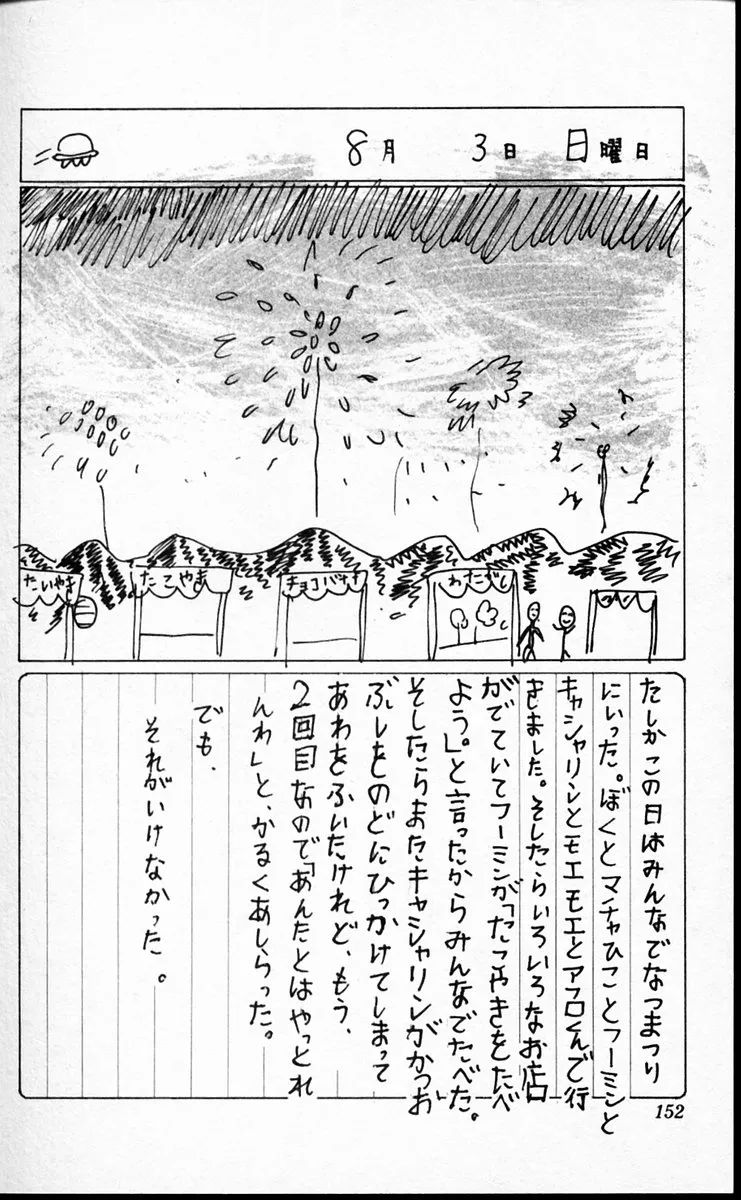 8月 3日 日曜日
たいやき
たこやき
チョコバナナ
わたがし
たしかこの日はみんなでなつまつり
にいった。ぼくとマチャひことフーミンと
キャシャリンとモエモエとアフロくんで行
きました。そしたらいろいろなお店
がでていてフーミンが「たこやきをたべ
よう。」と言ったからみんなでたべた。
そしたらまたキャシャリンがかつお
ぶしをのどにひっかけてしまって
あわをふいたけれど、もう、
2回目なので「あんたとはやっとれ
んわ」と、かるくあしらった。
でも、
それがいけなかった。
152